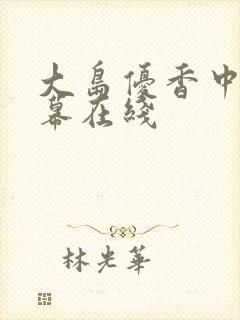 大島優香中
幕在綫
林光華